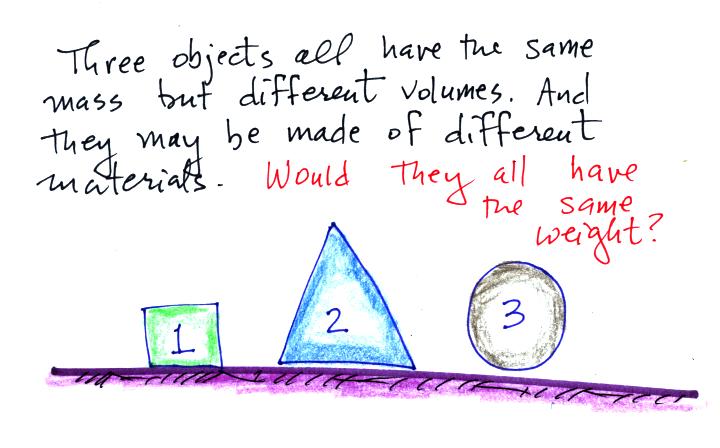 Three objects all have the same
mass but different volumes. And
they may be made of different
materials. Would they all have
the same
weight?
1 2 3